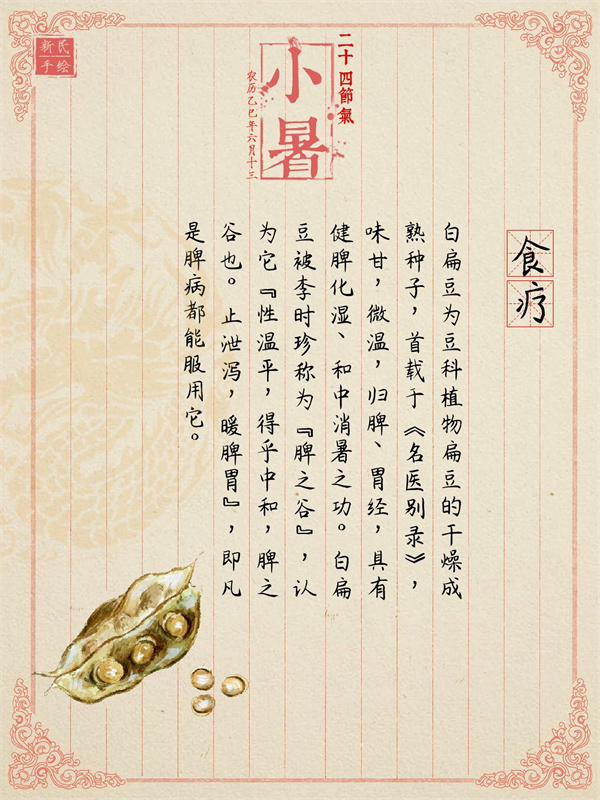 新民
手绘
二十四節氣
小暑
农历乙巳年六月十三
食疗
白扁豆为豆科植物扁豆的干燥成
熟种子，首载于《名医别录》，
味甘，微温，归脾、胃经，具有
健脾化湿、和中消暑之功。白扁
豆被李时珍称为『脾之谷』，认
为它『性温平，得乎中和，脾之
谷也。止泄泻，暖脾胃』，即凡
是脾病都能服用它。